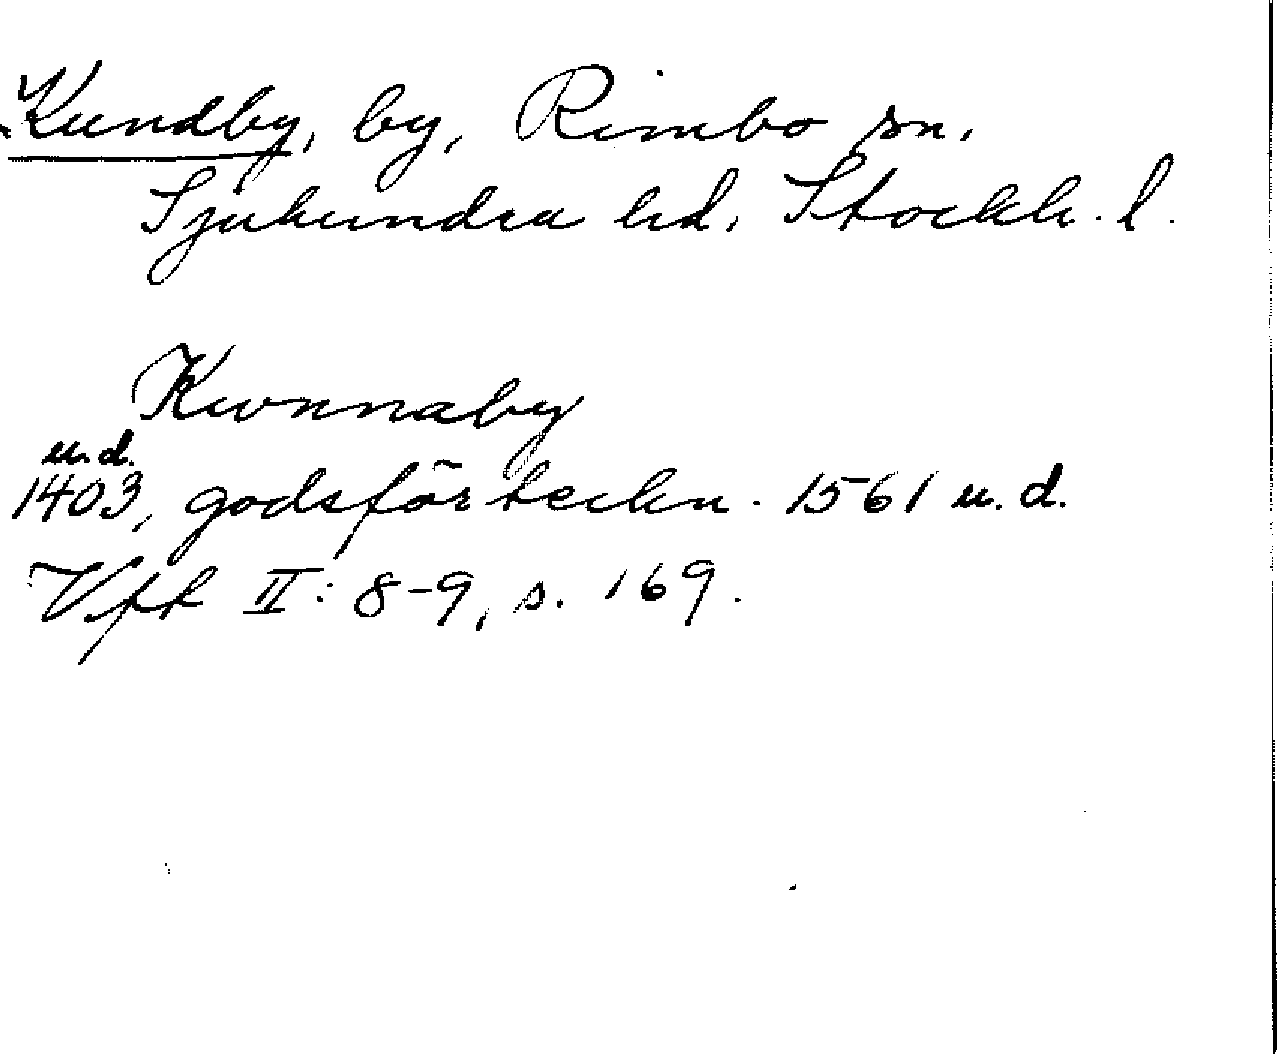 Kundby, by, Rimbo sn,
Sjuhundra hd, Stockh. l.
Kwnnaby
u.d.
1403, godsförteckn. 1561 u.d.
Vft II: 8-9, s. 169.